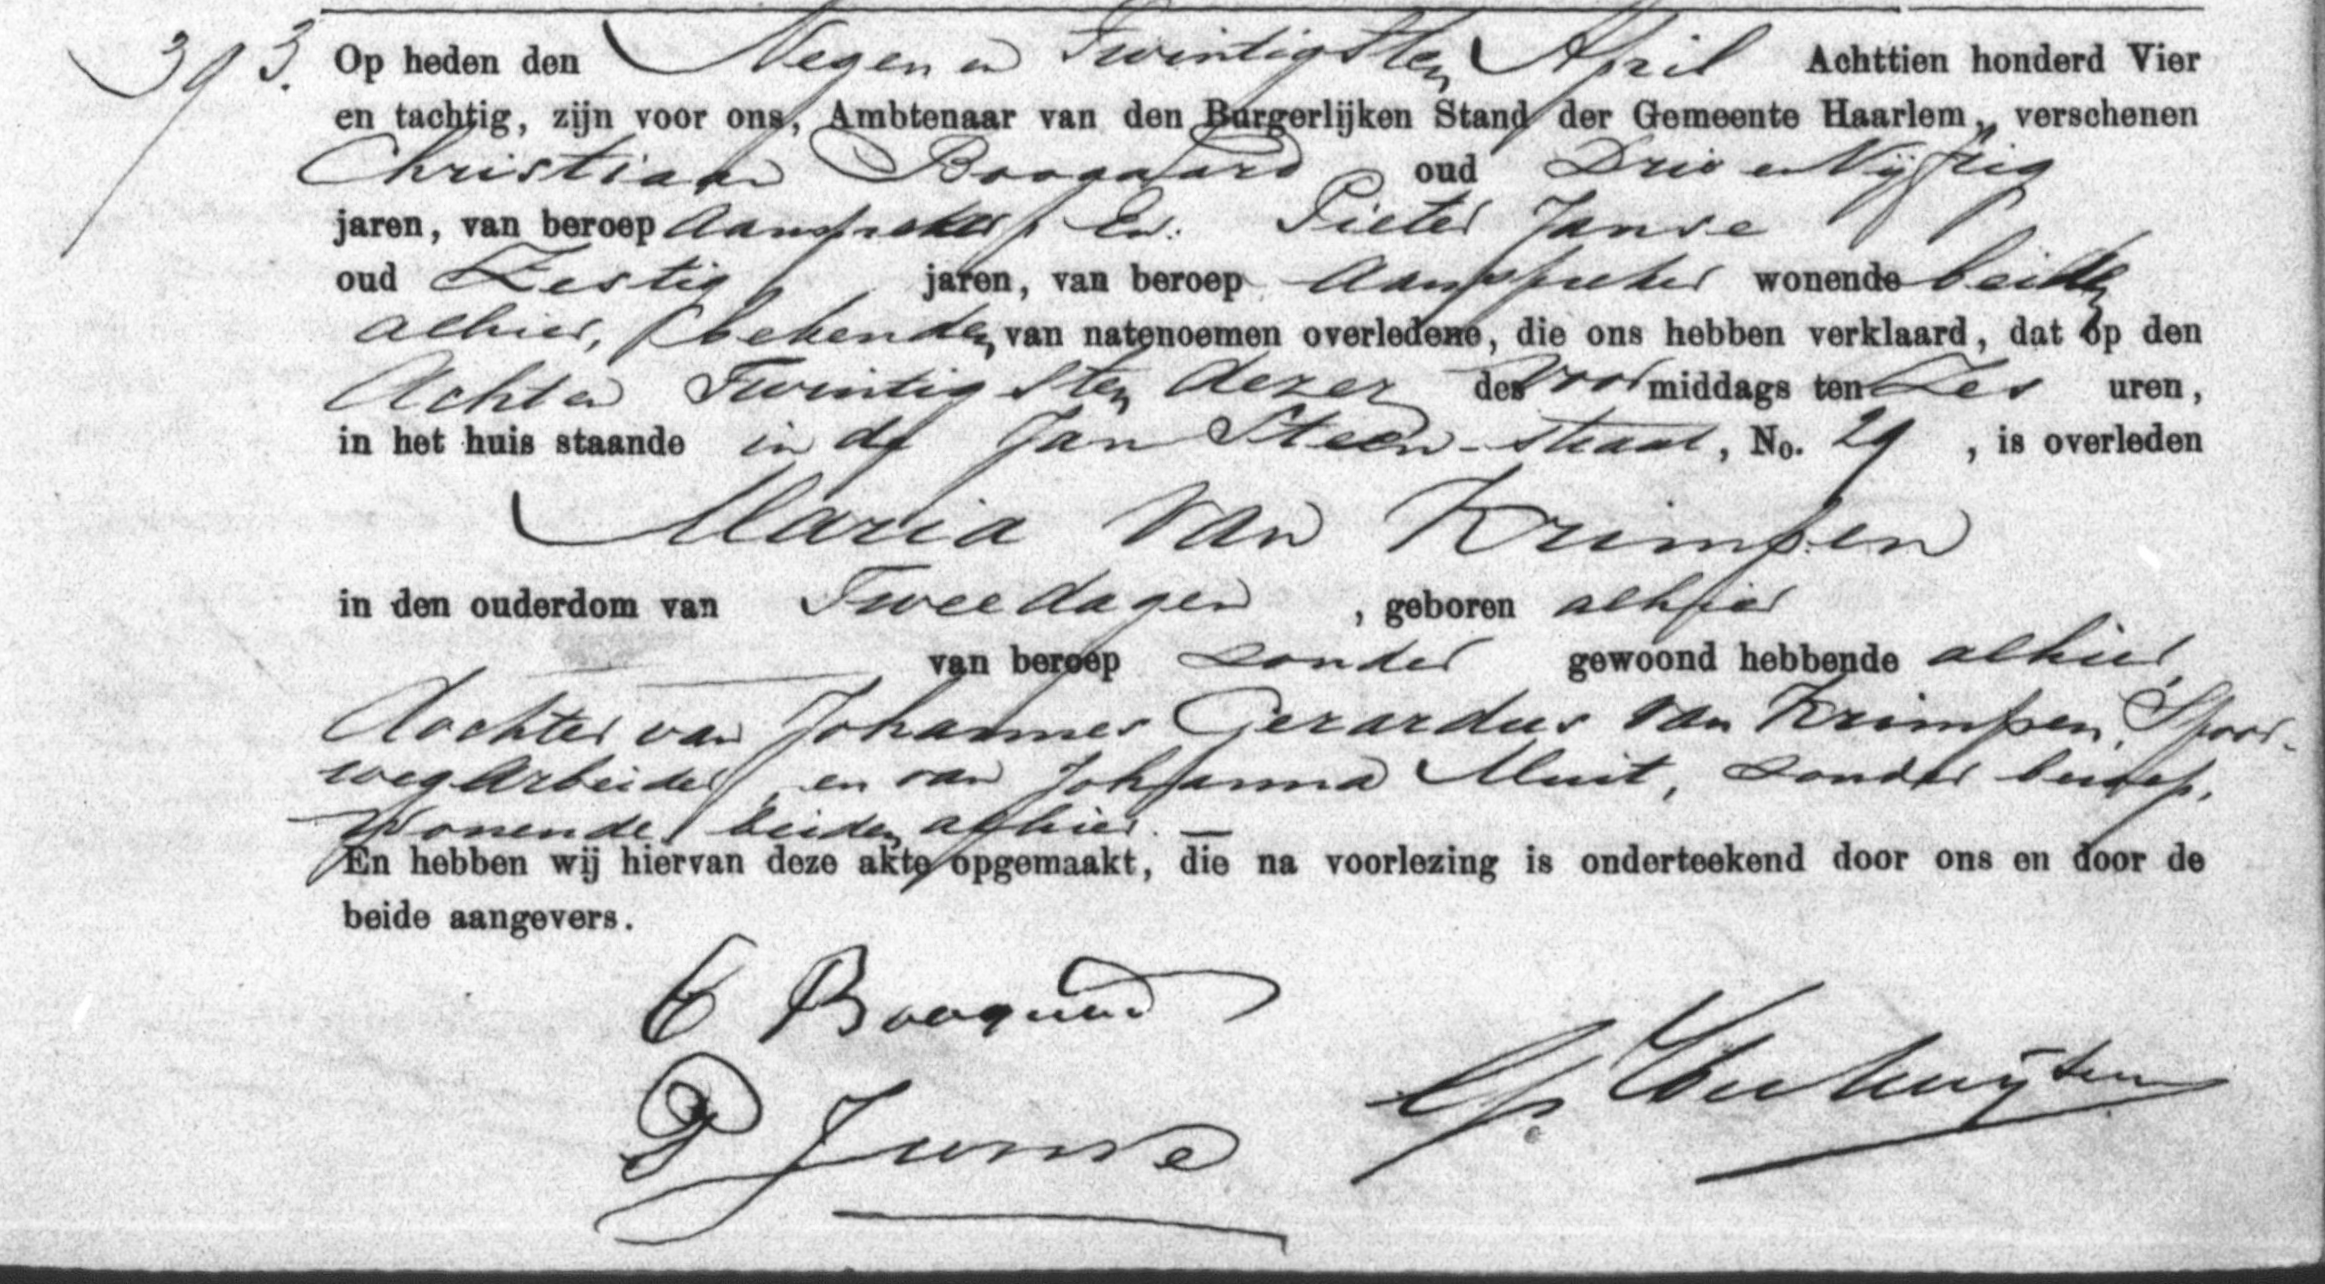 393. Op heden den Negen en Twintigsten April Achttien honderd Vier
en tachtig, zijn voor ons, Ambtenaar van den Burgerlijken Stand der Gemeente Haarlem, verschenen
Christiaan Boogaard oud Drie en Vijftig
jaren, van beroep Aanspreker, En Pieter Janse
oud Zestig jaren, van beroep Aanspreker wonende beiden
alhier, bekenden van natenoemen overledene, die ons hebben verklaard, dat op den
Acht en Twintigsten dezer des Voormiddags ten Zes uren,
in het huis staande in de Jan Steen-straat, No. 29, is overleden
Maria van Krimpen
in den ouderdom van Twee dagen, geboren alhier
van beroep zonder gewoond hebbende alhier,
dochter van Johannes Gerardus van Krimpen, Spoor-
wegarbeider, en van Johanna Muit, zonder beroep,
wonende beiden alhier. —
En hebben wij hiervan deze akte opgemaakt, die na voorlezing is onderteekend door ons en door de
beide aangevers.
C Boogaard
P Janse